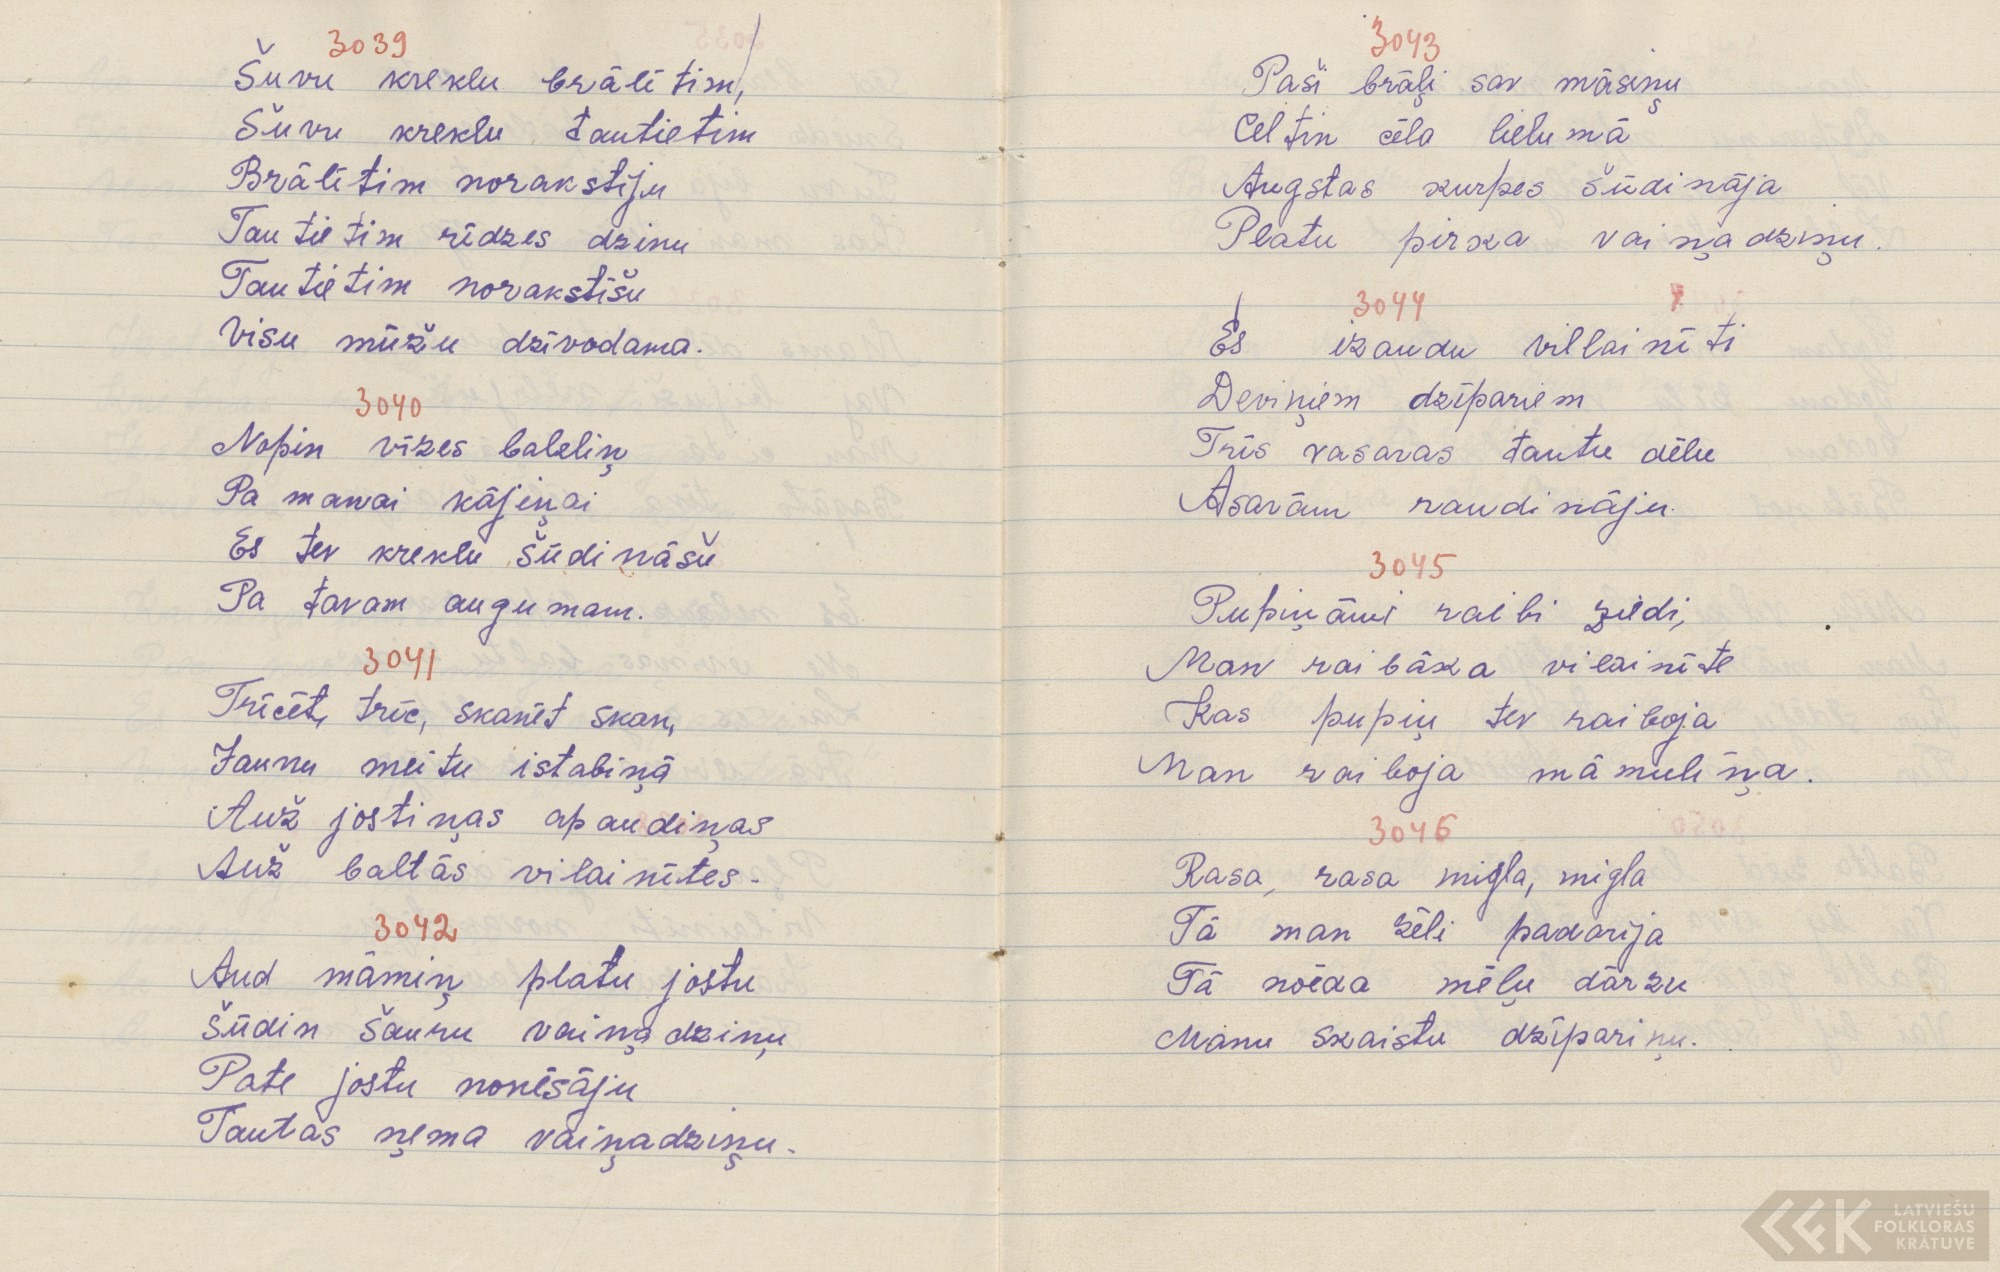 3039
Šuvu kreklu brālītim,
Šuvu kreklu tautietim
Brālītim norakstīju
Tautietim rīdzes dzinu
Tautietim norakstīšu
Visu mūžu dzīvodama.
3040
Nopin vīzes baleliņ
Pa manai kājiņai
Es tev kreklu šūdināšu
Pa tavam augumam.
3041
Trīcēt, trīc, skanēt skan,
Jaunu meitu istabiņā
Auž jostiņas apaudiņas
Auž baltās vilainītes.
3042
Aud māmiņ platu jostu
Šūdin šauru vaiņadziņu
Pate jostu nonēsāju
Tautas ņema vaiņadziņu.
3043
Paši brāļi sav māsiņu
Celtin cēla lielumā
Augstas kurpes šūdināja
Platu pirka vaiņadziņu.
3044
Es izaudu villainīti
Deviņiem dzīpariem
Trīs vasaras tautu dēlu
Asarām raudināju.
3045
Pupiņāmi raibi ziedi,
Man raibāka vilainīte
Kas pupiņ tev raiboja
Man raiboja māmuliņa.
3046
Rasa, rasa migla, migla
Tā man žēli padarīja
Tā noēda mēļu dārzu
Manu skaistu dzīpariņu.
LATVIEŠU
FOLKLORAS
KRĀTUVE